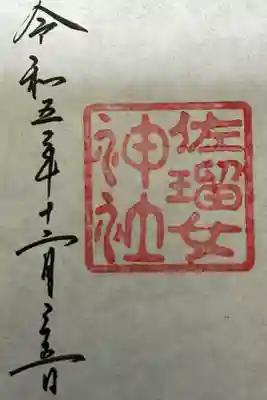 佐瑠女
神社
令和五年十二月二五日